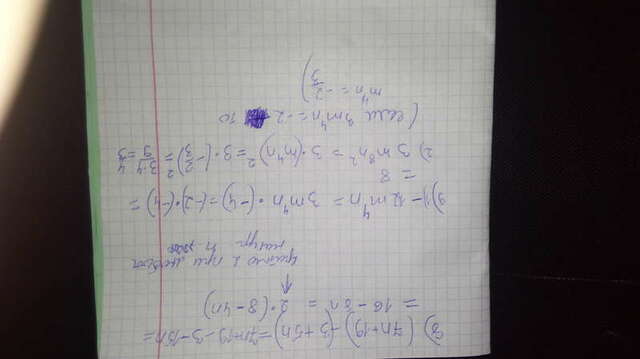 8) (7n+19) - (3+5n) = 7n+19 - 3 - 15n =
= 16 - 8n = 2·(8-4n)
↑
кратно 2 при любом
натур n
9) 1) - 12m⁴n = 3m⁴n·(-4) = (-2)·(-4) =
= 8
2) 3m⁸n² = 3·(m⁴n)² = 3·(-2/3)² = 3·4/9 = 4/3
(если 3m⁴n = -2 то
m⁴n = -2/3)